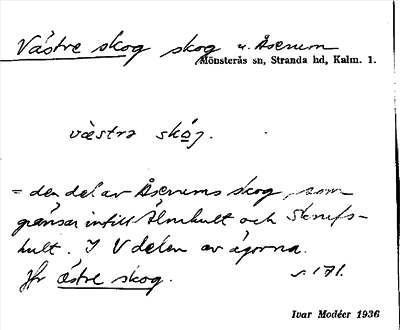 Västre skog skog u. Åserum
Mönsterås sn, Stranda hd, Kalm. 1.
væstrə skóg.
= den del av Åserums skog, som
gränsar intill Älmhult och Skrufs-
hult. I V delen av ägorna.
Jfr östre skog. s. 171.
Ivar Modéer 1936